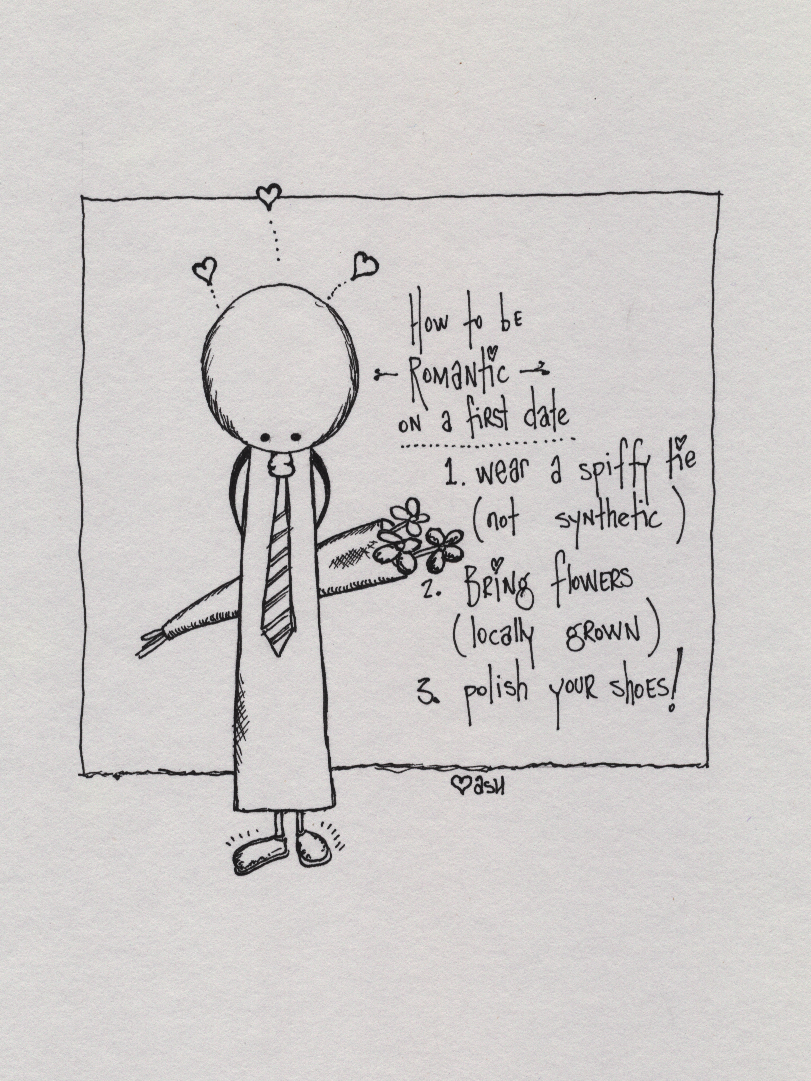 How to be
Romantic
on a first date
1. wear a spiffy tie
(not synthetic)
2. Bring flowers
(locally grown)
3. polish your shoes!
♡ash